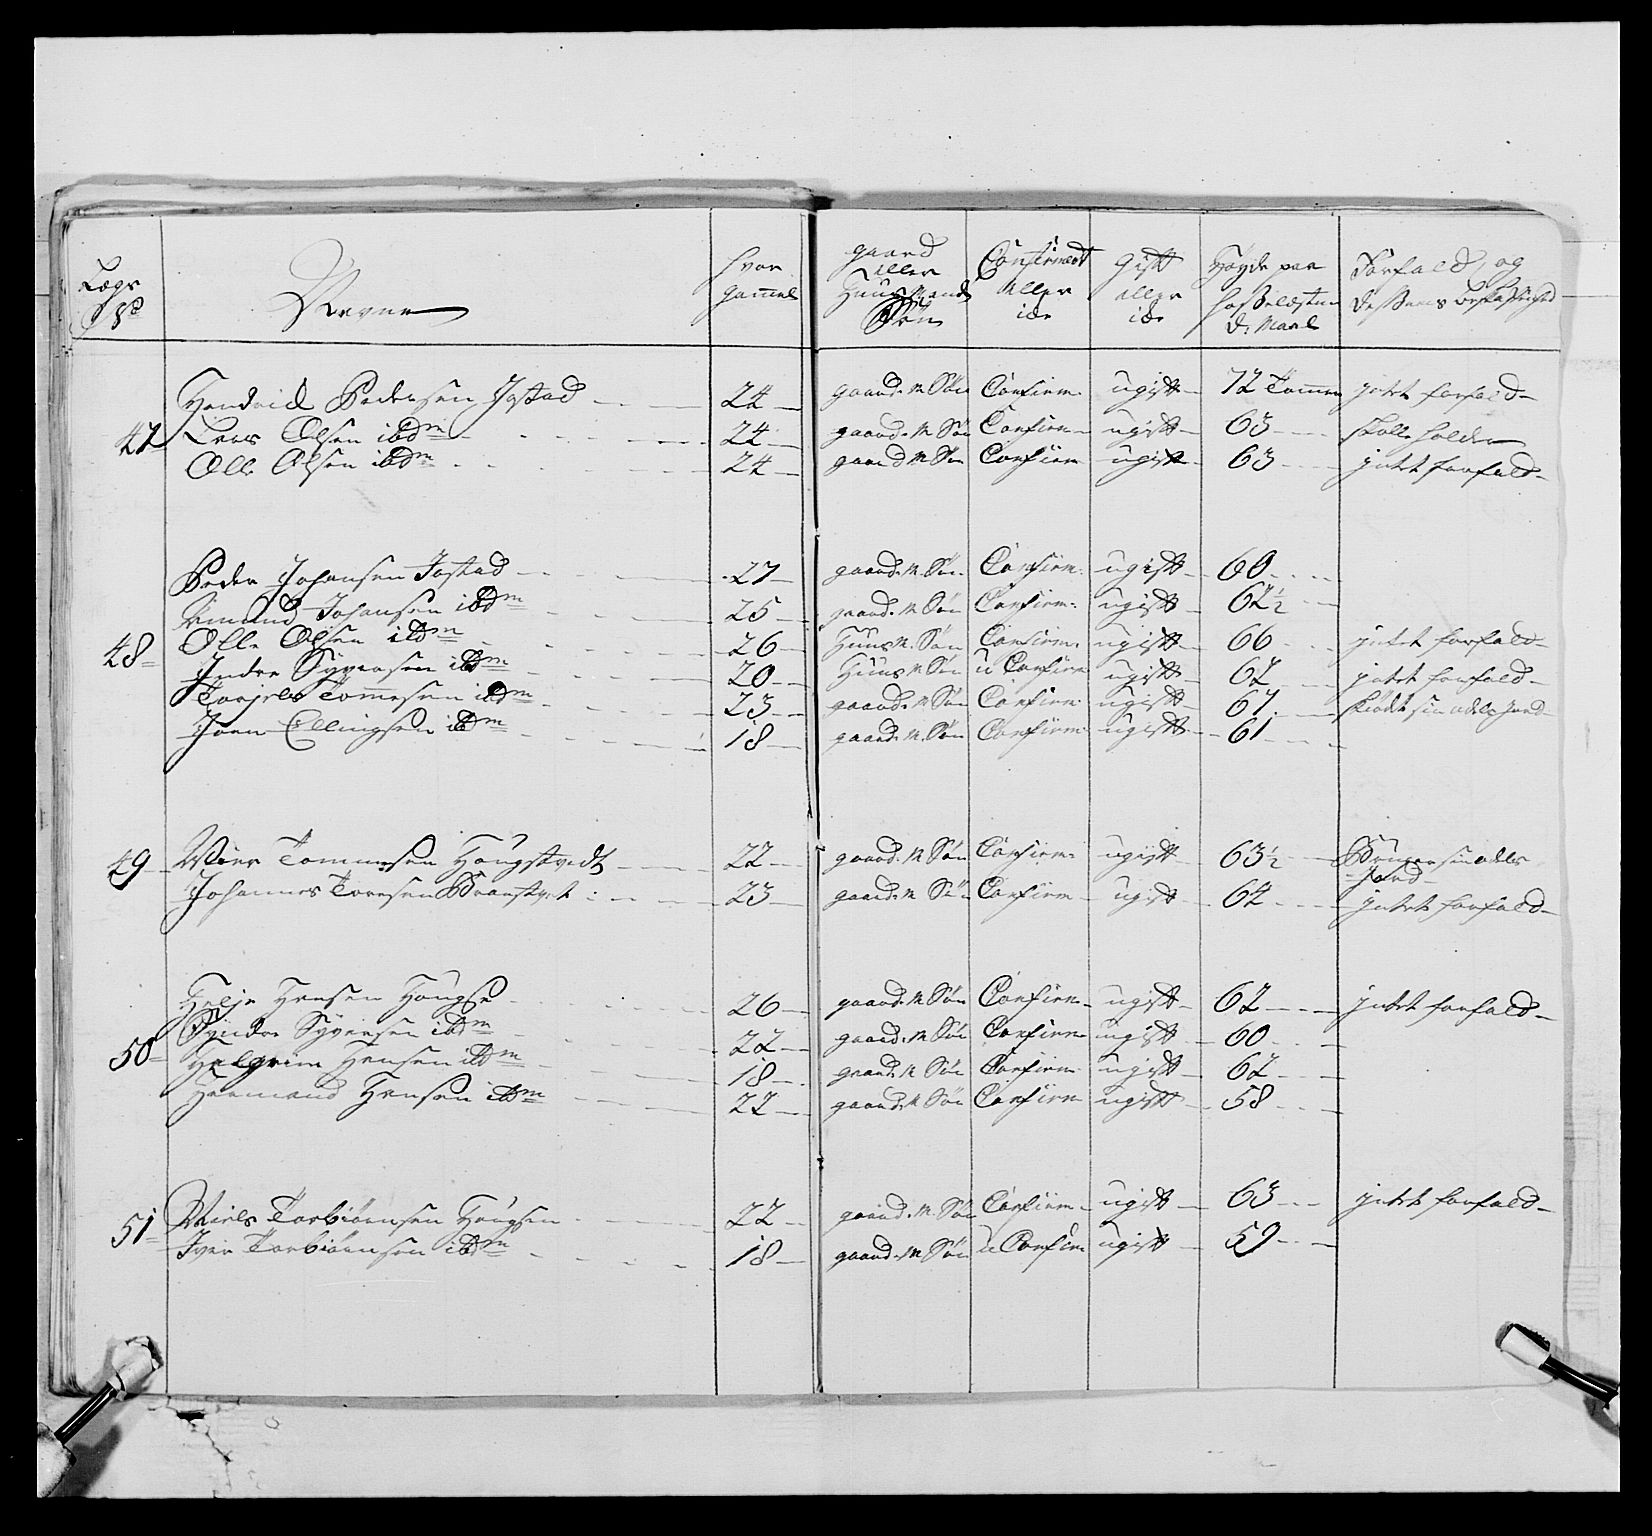 Lægs No Navne hvor gammel gaard eller Huus Mands Søn Confirmeret eller ide Gift eller ide Høyde paa Forfald, og dessens beskaffenhed
Hendrich Pedersen Jostad 24 gaard. M Søn Confirm. ugift 72 Tommer intet forfald
47 Lars Olsen ibdm 24 gaard. M Søn Confirm ugift 63
Olle Olsen ibdm 24 gaard M Søn Confirm ugift 63 intet forfald
Peder Johansen Jostad 27 gaard. M. Søn Confirm. ugift 60
Amund Johansen ibdm 25 gaard. M Søn Confirm. ugift 62½
48 Olle Olsen ibdm 26 Huus M. Søn Confirm. ugift 66 intet forfald
Endre Syversen ibdm 20 Huus M Søn u Confirm ugift 62 intet forfald
Torgels Tommesen ibdm 23 gaard. M Søn Confirm ugift 67
Joen Ellingsen ibdm 18 gaard. M. Søn Confirm ugift 61
49 Tommesen Hougstvedt 22 gaard. M Søn Confirm. ugift 63½ Bruger sin odels Jord
Johannes Toresen 23 gaard. M Søn Confirm ugift 64 intet forfald
Helje Hensen Hougse 26 gaard. M Søn Confirm ugift 62 intet forfald
Syver Syversen ibdm 22 gaard. M Søn Confirm ugift 60
50 Helgrim Hensen ibdm 18 gaard. M Søn Confirm. ugift 62
Hermand Hensen ibdm 22 gaard. M Søn Confirm ugift 58
51 Niels Torbiørnsen Hougsen 22 gaard. M. Søn Confirm. ugift 63 intet forfald
Iver Torbiørnsen ibdm 18 gaard. M Søn u Confirm ugift 59